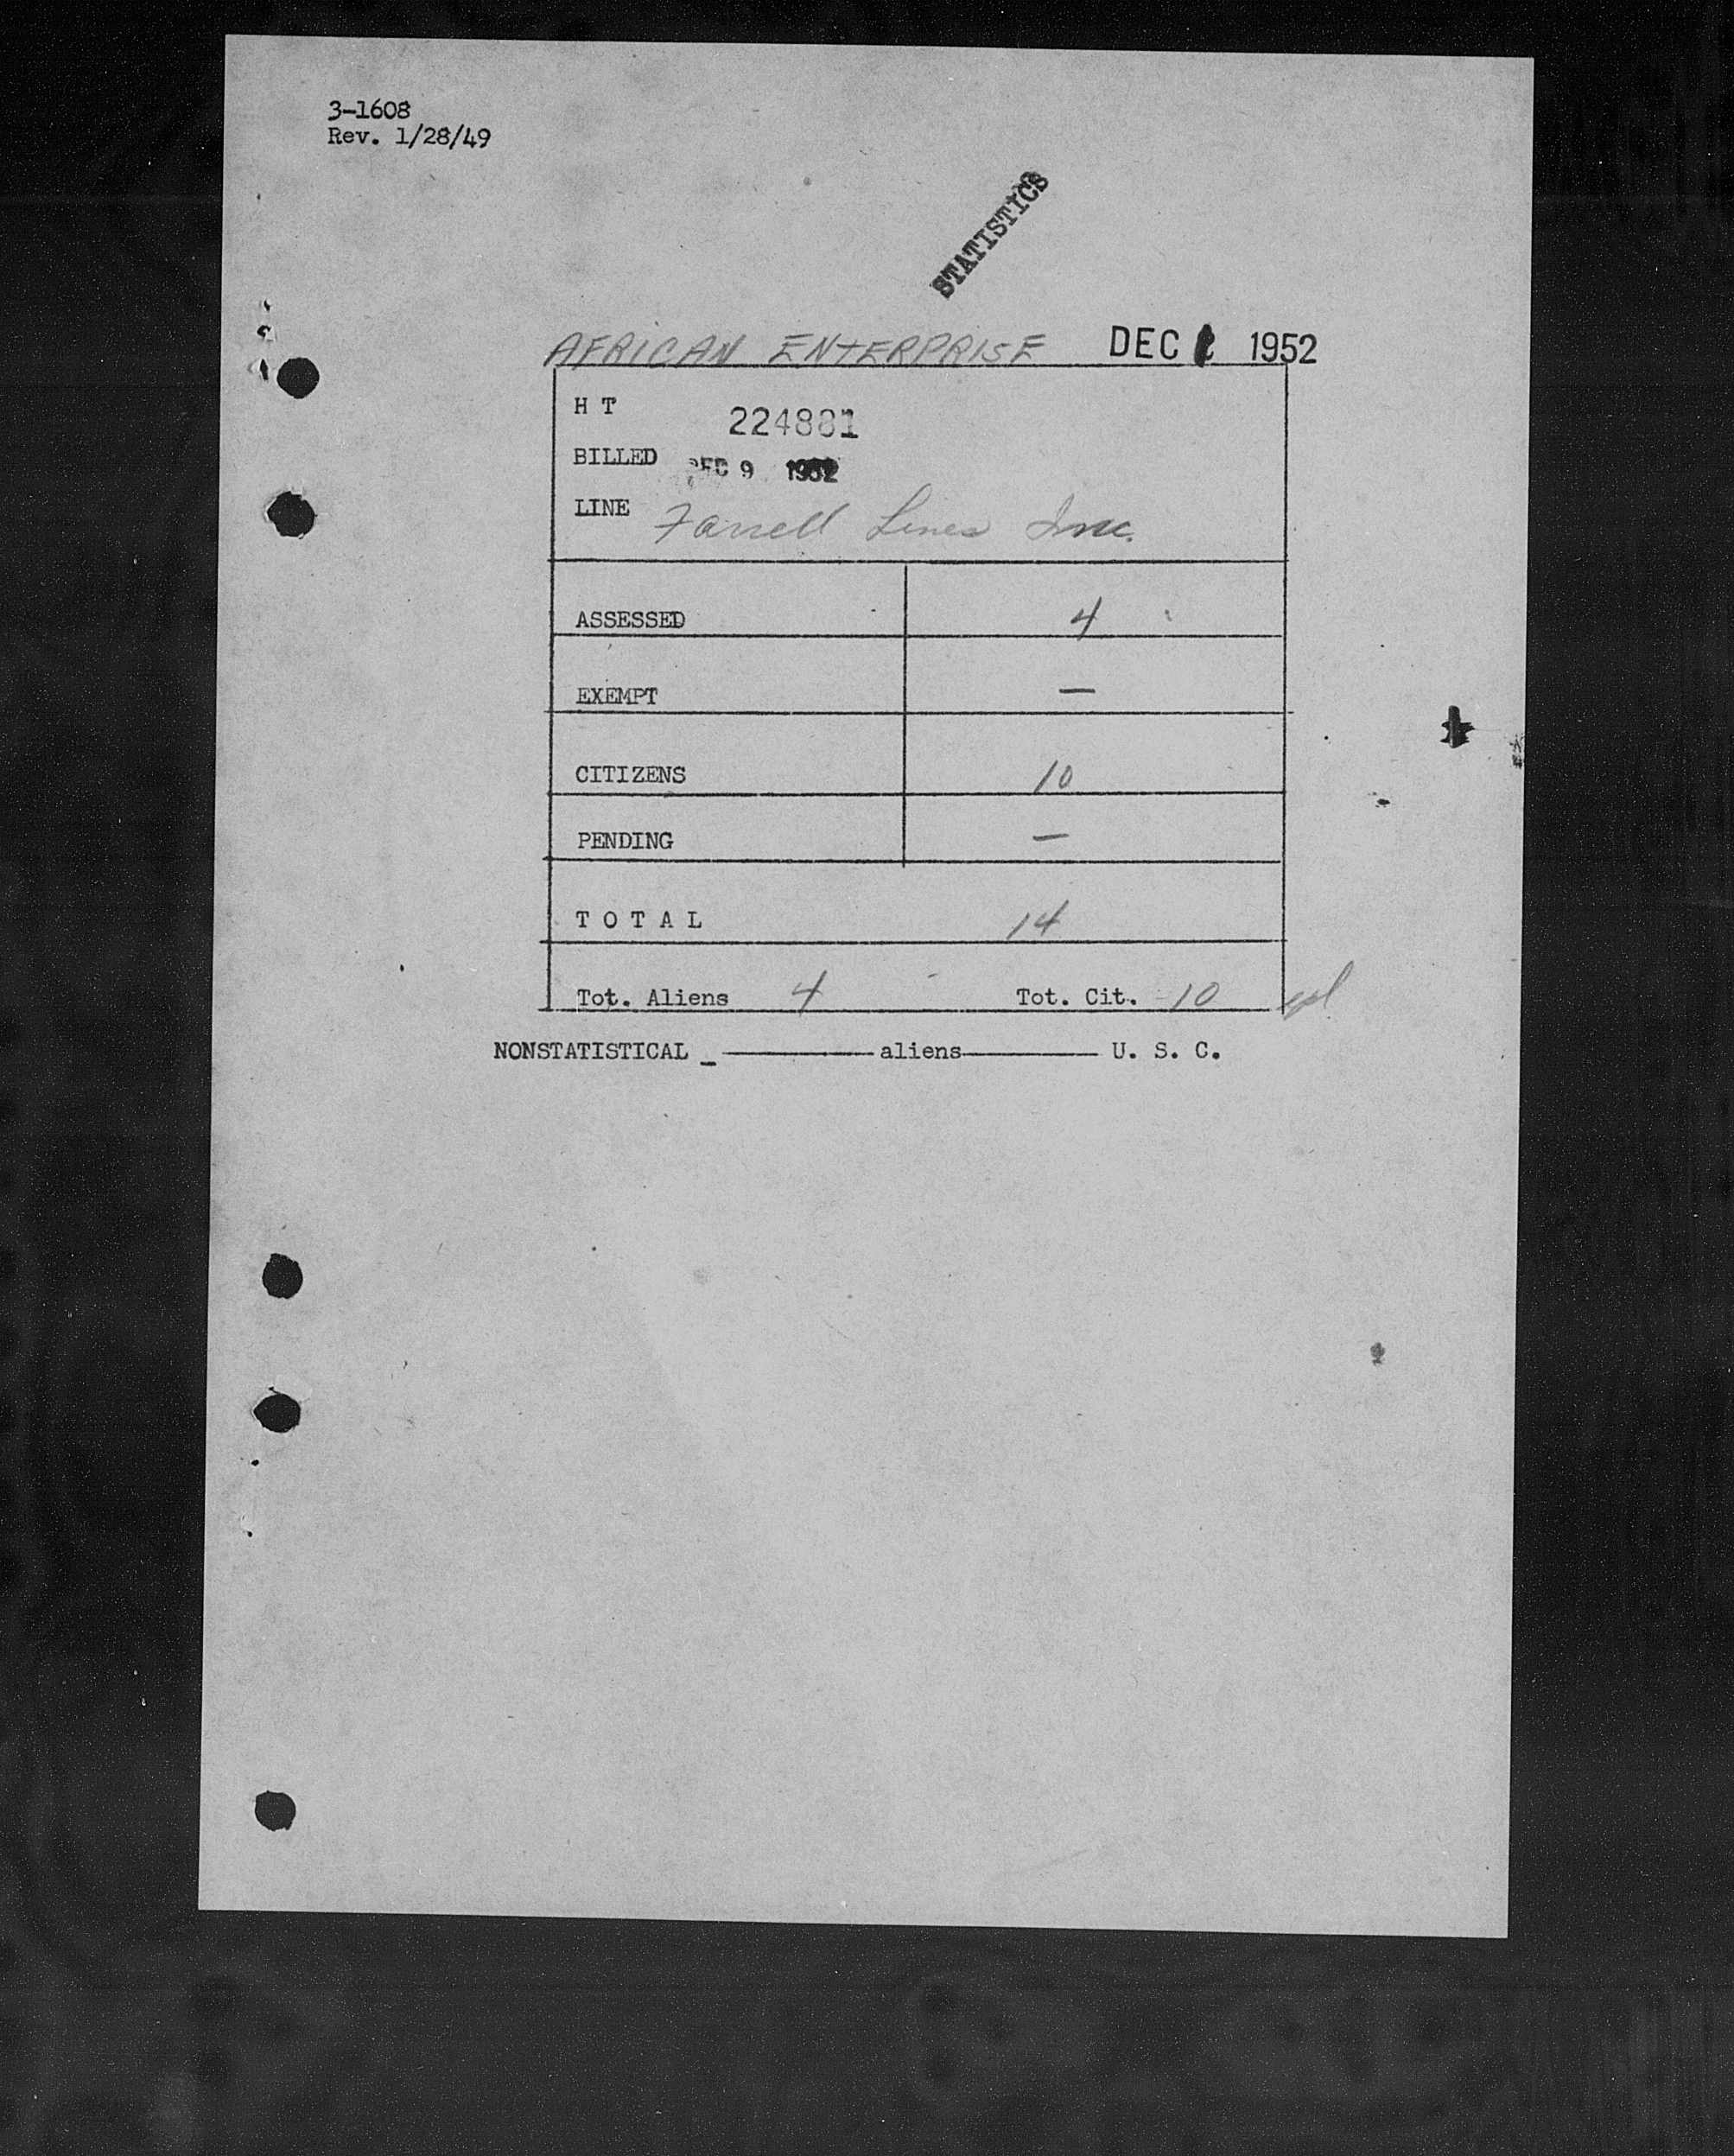 3-1608
Rev. 1/28/49
STATISTICS
AFRICAN ENTERPRISE DEC 1952
H T 224881
BILLED DEC 9 1952
LINE Farrell Lines Inc.
ASSESSED 4
EXEMPT —
CITIZENS 10
PENDING —
T O T A L 14
Tot. Aliens 4 Tot. Cit. 10
NONSTATISTICAL aliens U. S. C.